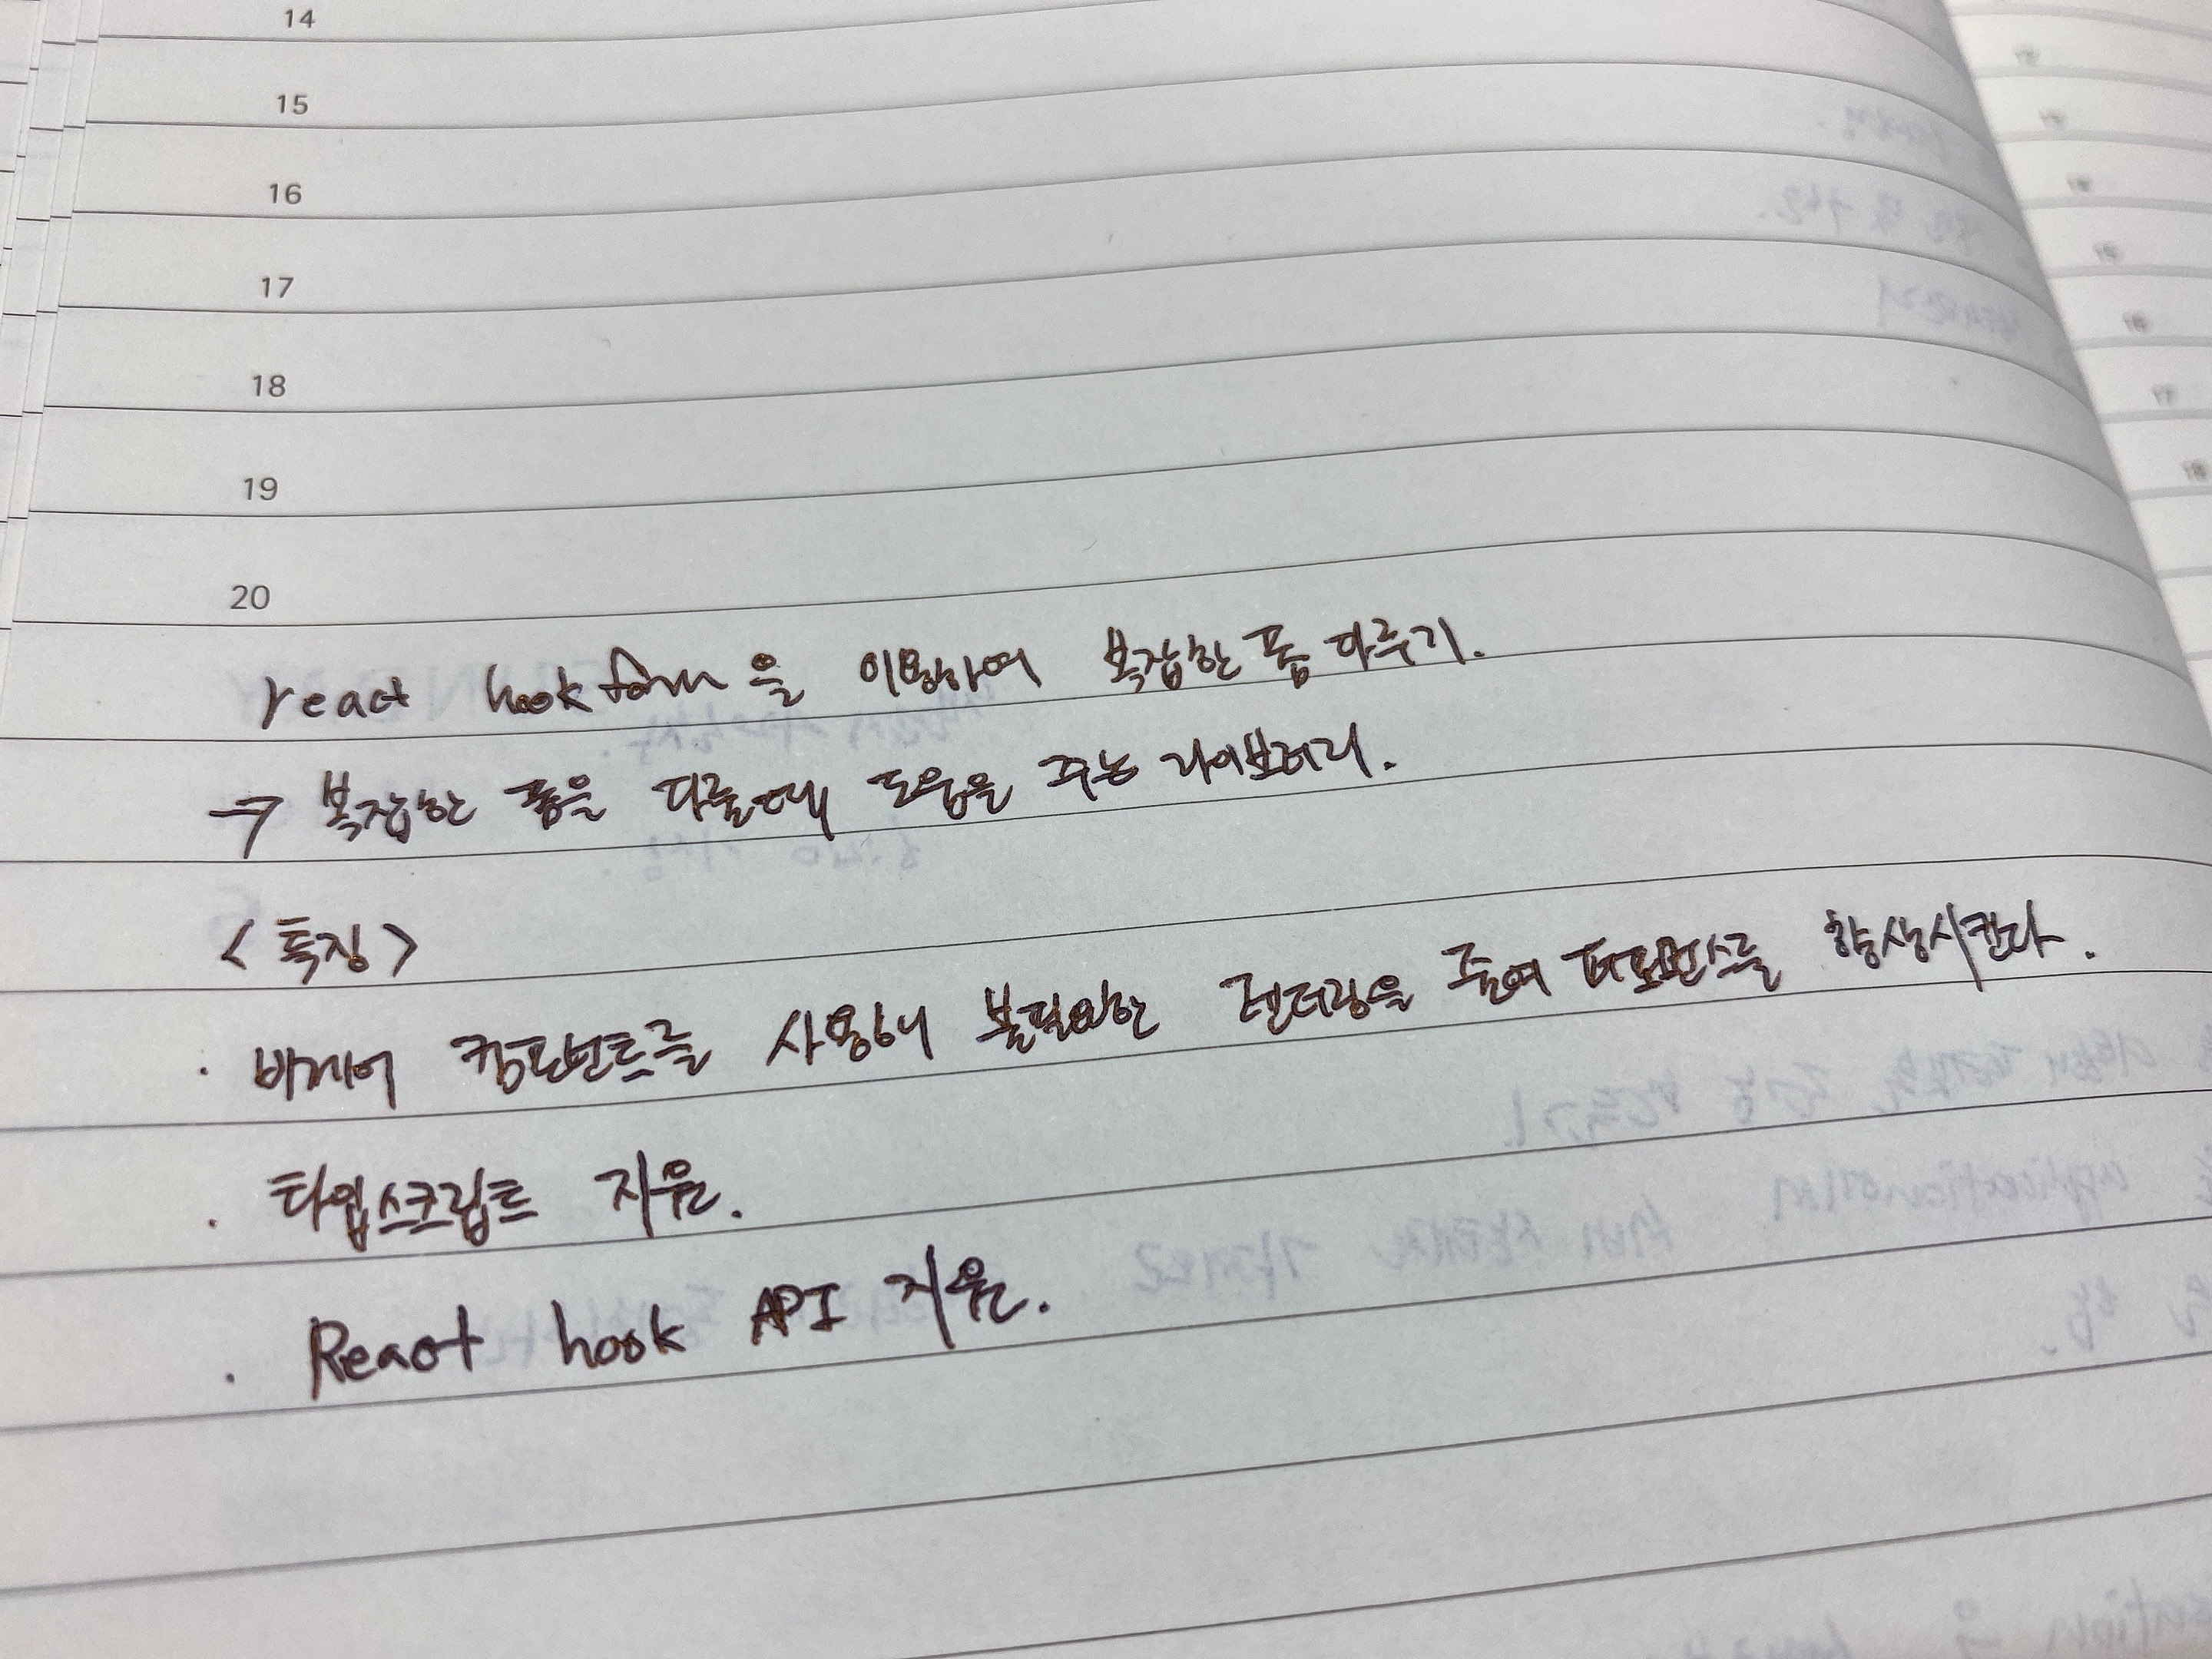 14
15
16
17
18
19
20
react hook form을 이용하여 복잡한 폼 다루기.
→ 복잡한 폼을 다룰때 도움을 주는 라이브러리.
<특징>
· 비제어 컴포넌트를 사용해 불필요한 렌더링을 줄여 퍼포먼스를 향상시킨다.
· 타입스크립트 지원.
· React hook API 지원.